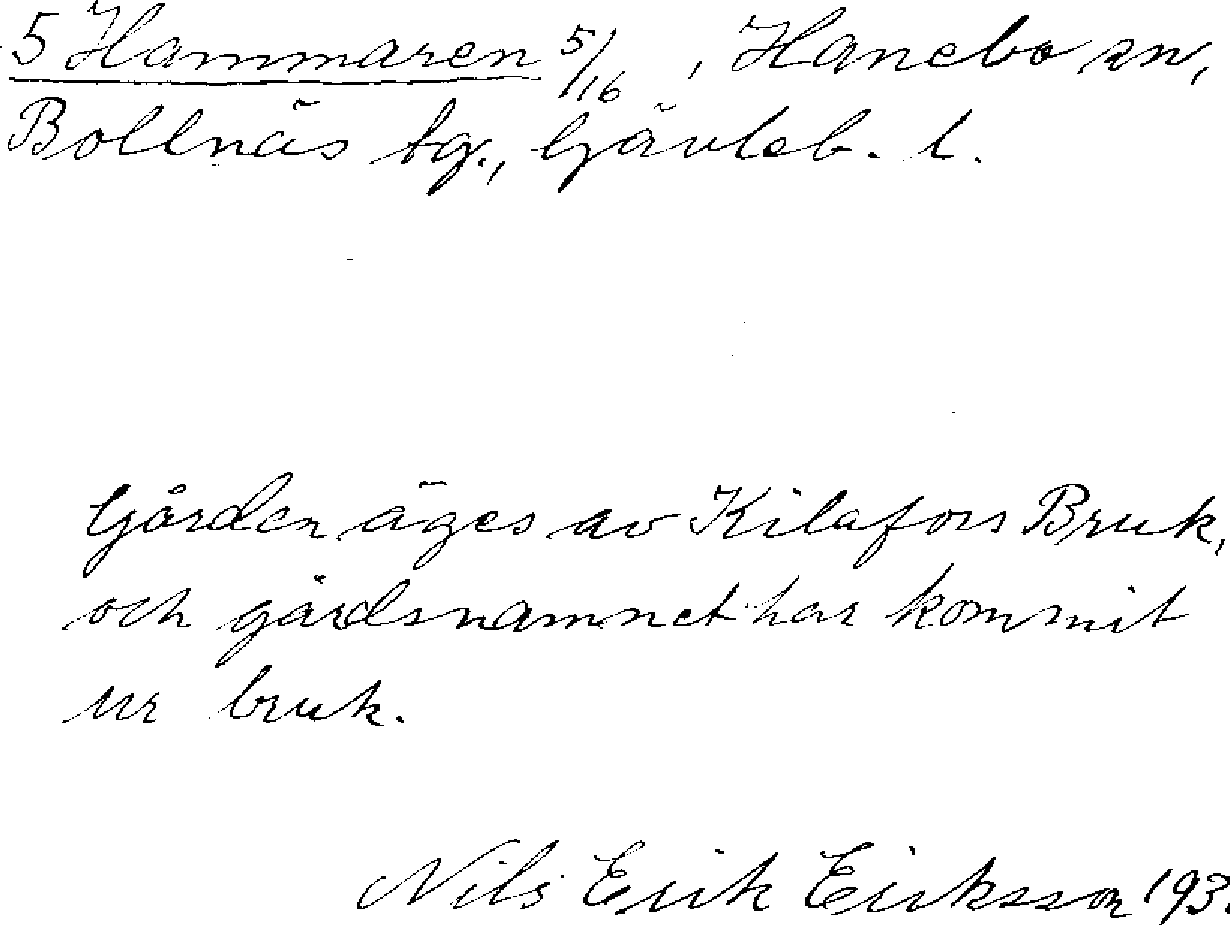 5 Hammaren 5/16, Hanebo sn,
Bollnäs tg., Gävleb. l.
Gården äges av Kilafors Bruk,
och gårdsnamnet har kommit
ur bruk.
Nils Erik Eriksson 193